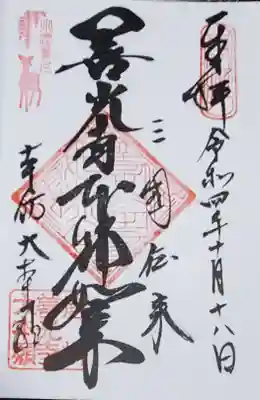 奉拝 令和四年十月十八日
三国伝来
善光寺本師如来
本坊大本願